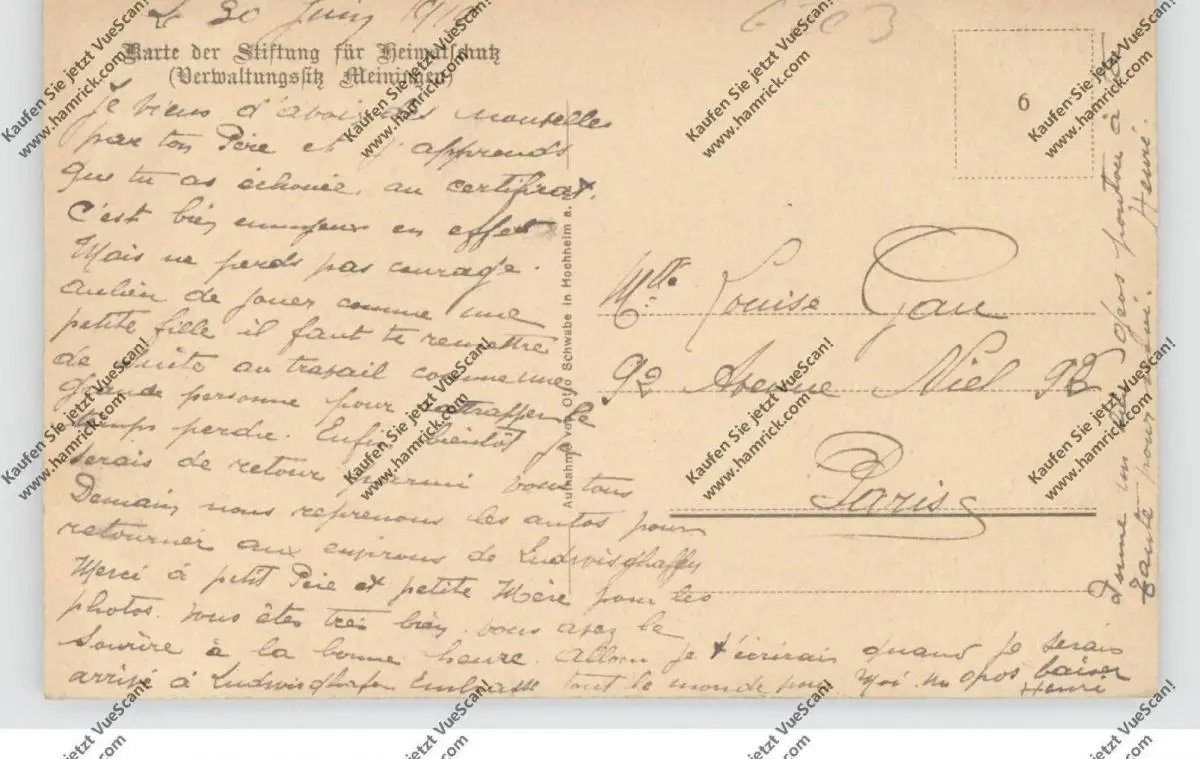 Le 30 Juin
Karte der Stiftung für Heimatschutz
(Verwaltungssitz Meiningen)
Je viens d'avoir des nouvelles
par ton Père et j'apprends
que tu as échouée au certificat.
C'est bien ennuyeux en effet
Mais ne perds pas courage.
Aulieu de jouer comme une
petite fille il faut te remettre
de suite au travail comme une
grande personne pour rattrapper le
temps perdu. Enfin bientôt je
serais de retour parmi vous tous
Demain nous reprenons les autos pour
retourner aux environs de Ludwisghaffen
Merci à petit Père et petite Mère pour les
photos. vous êtes très bien. vous avez le
sourire à la bonne heure. allons je t'écrirais quand je serais
arrivé à Ludwisghafen Embrasse tout le monde pour moi. un gros baiser
Henri
Aufnahme von Otto Schwabe in Hochheim a.
6
Mlle Louise Gau
92 Avenue Niel 92
Paris
Donne un
Tante pour moi. Henri.
Kaufen Sie jetzt VueScan!
www.hamrick.com